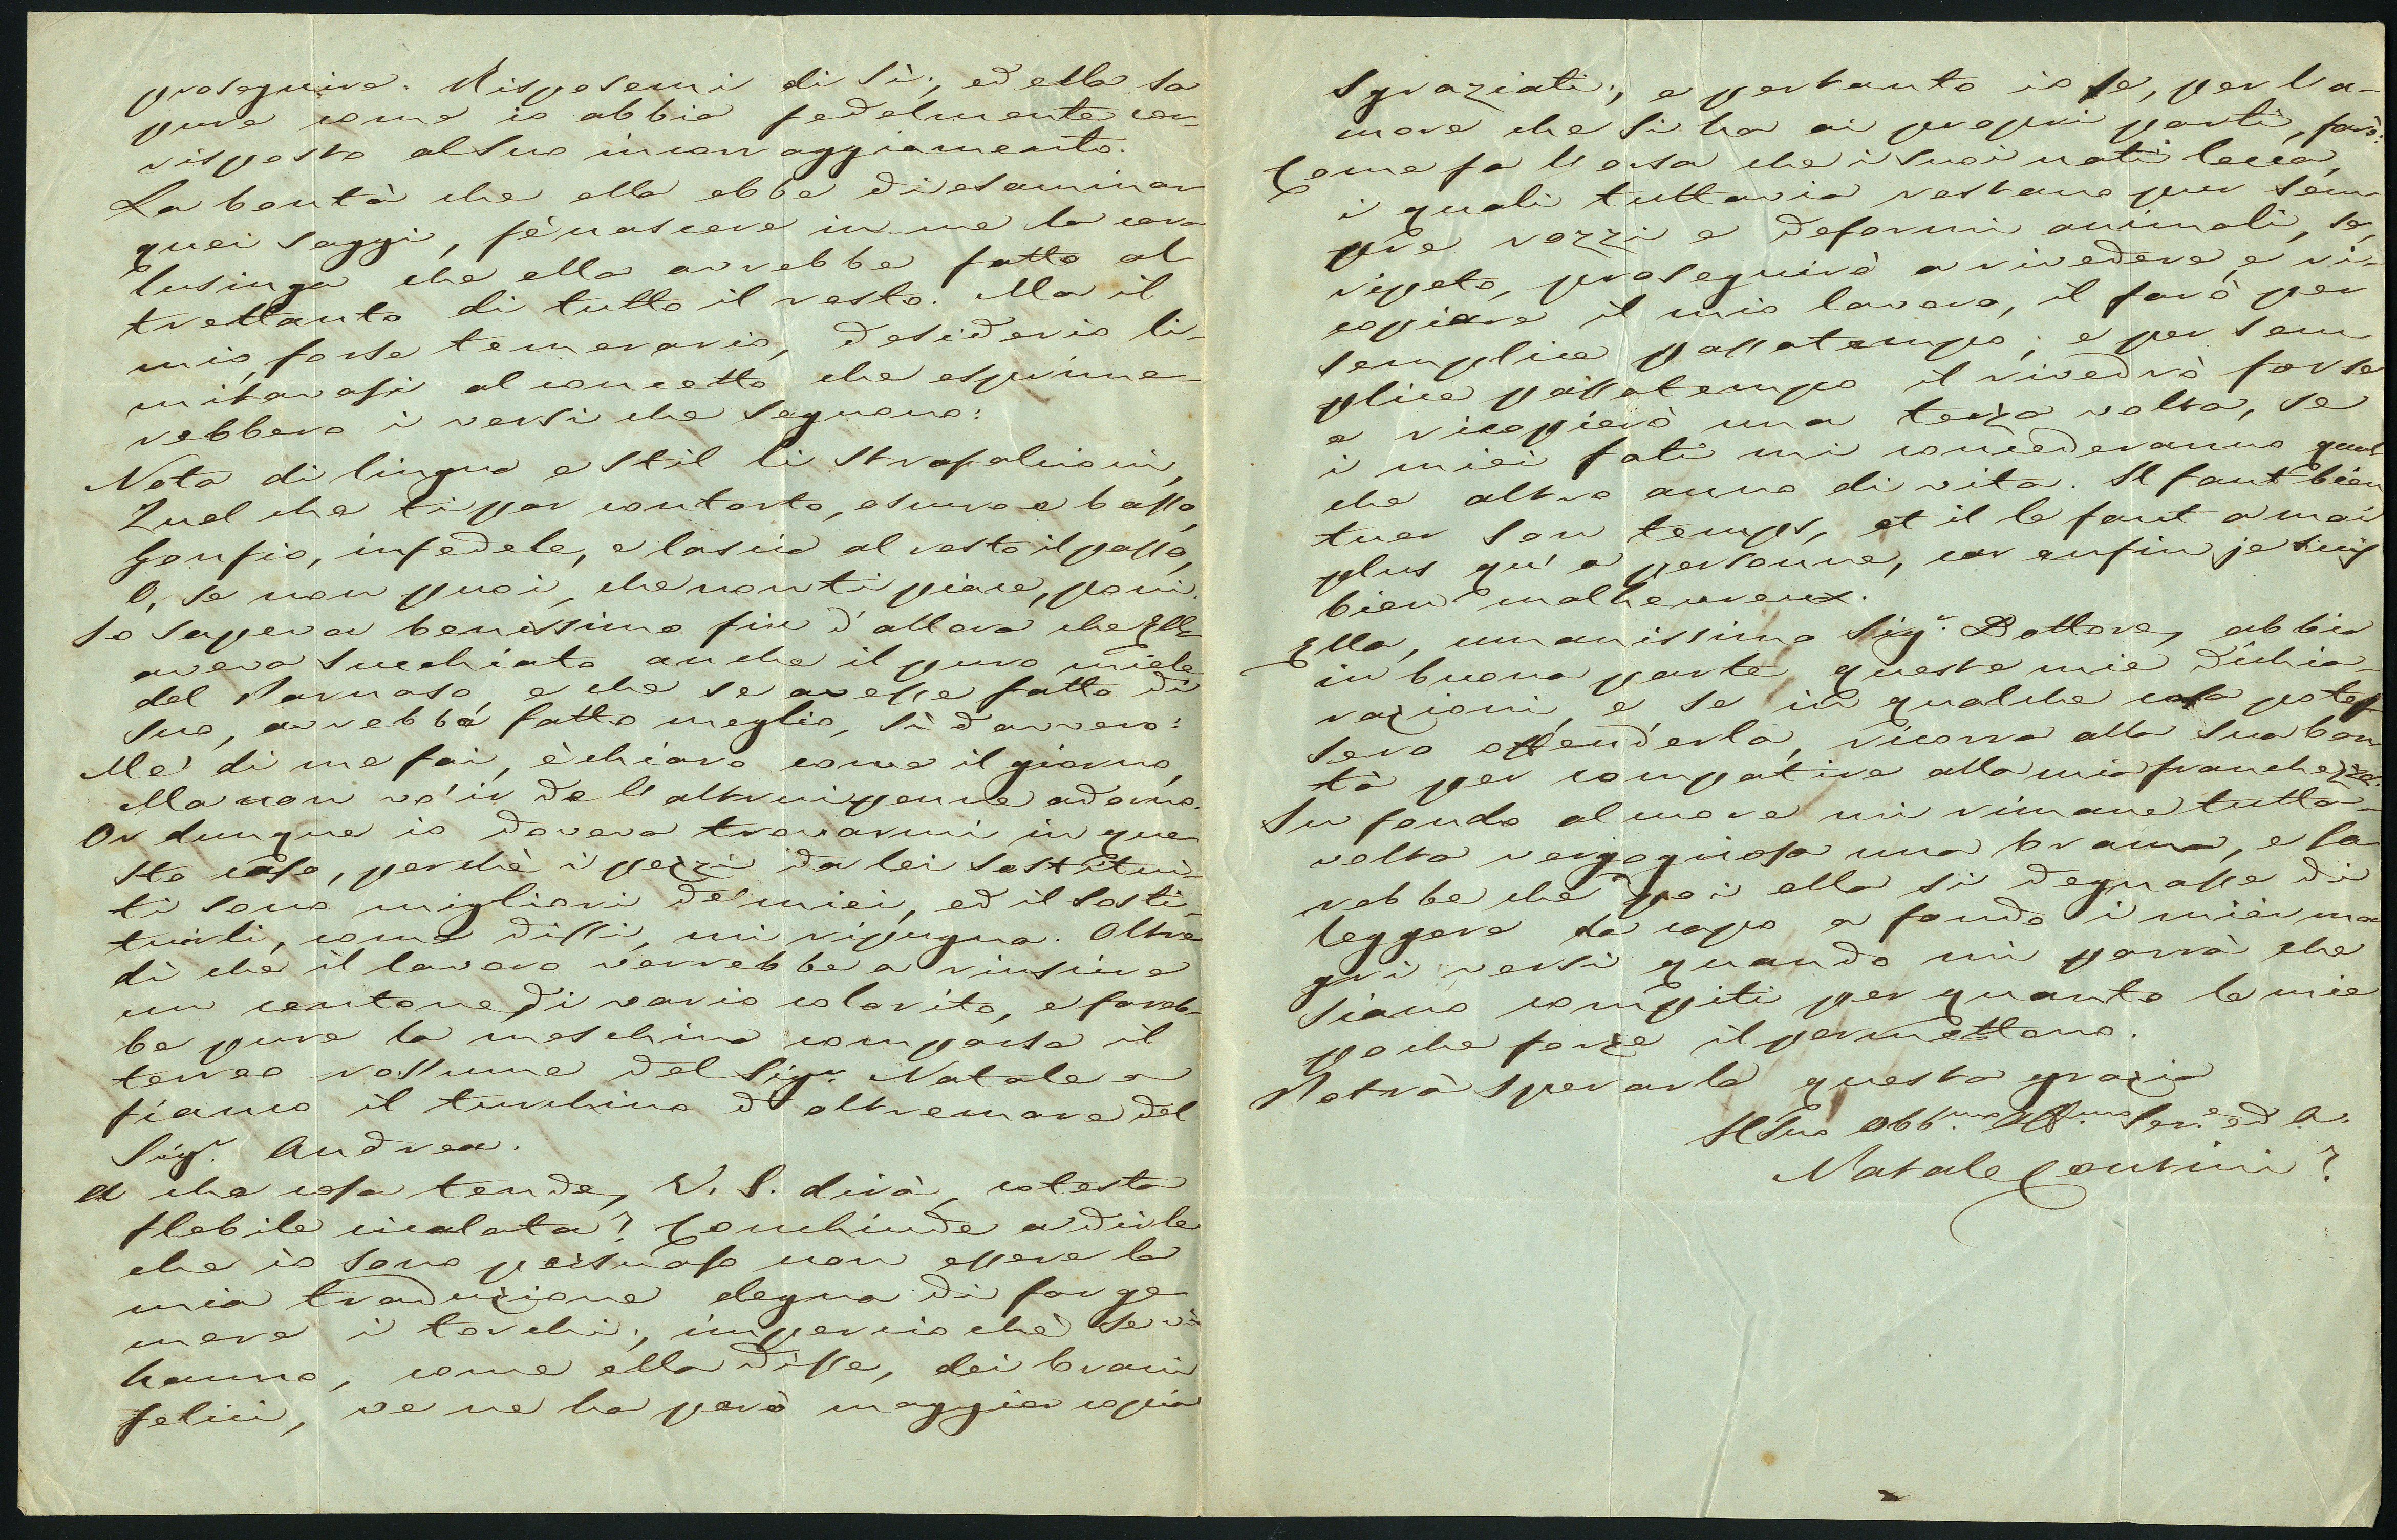 proseguire. Risposemi di sì; ed ella sa
pure come io abbia fedelmente cor-
risposto al suo incorraggiamento.
La bontà che ella ebbe di esaminar
quei saggi, fè nascere in me la cara
lusinga che ella avrebbe fatto al-
trettanto di tutto il resto. Ma il
mio, forse temerario, desiderio li-
mitavasi al concetto che esprime-
rebbero i versi che seguono:
Nota di lingua e stil li strafalcioni,
Quel che ti par contorto, oscuro e basso,
Gonfio, infedele, e lascia al resto il passo,
O, se non puoi, che non ti piace, poni.
Io sapeva benissimo fin d'allora che Ella
aveva succhiato anche il puro miele
del Parnaso, e che se avesse fatto di
suo, avrebbe fatto meglio, sì davvero:
Me' di me fai, è chiaro come il giorno,
Ma non vo' ir de l'altrui penne adorno.
Or dunque io doveva trovarmi in que-
sto caso, perchè i pezzi da lei sostitui-
ti sono migliori de' miei, ed il sosti-
tuirli, come dissi, mi ripugna. Oltre
di che il lavoro verrebbe a riuscire
un centone di vario colorito, e fareb-
be pure la meschina comparsa il
terreo rossume del Sigr. Natale a
fianco il turchino d'oltremare del
Sigr. Andrea.
A che cosa tende, V. S. dirà, cotesta
flebile cicalata? Conchiude a dirle
che io sono persuaso non essere la
mia traduzione degna di far ge-
mere i torchi; imperciochè se vi
hanno, come ella disse, dei brani
felici, ve ne ha però maggior copia
sgraziati; e pertanto io se, per l'a-
more che si ha ai proprj parti, farò:
Come fa l'orsa che i suoi nati lecca,
i quali tuttavia restano pur sem-
pre rozzi e deformi animali, se,
ripeto, proseguirò a rivedere, e ri-
copiare il mio lavoro, il farò per
semplice passatempo; e per sem-
plice passatempo il rivedrò forse
e ricopierò una terza volta, se
i miei fati mi concederanno qual-
che altro anno di vita. Il faut bien
tuer son temps, et il le faut a moi
plus qu'a personne, car enfin je suis
bien malheureux.
Ella, umanissimo Sigr. Dottore, abbia
in buona parte queste mie dichia-
razioni, e se in qualche cosa potes-
sero offenderla, ricorra alla sua bon-
tà per compatire alla mia franchezza.
In fondo al cuore mi rimane tutta-
volta vergognosa una brama, e sa-
rebbe che poi ella si degnasse di
leggere da capo a fondo i miei ma-
gri versi quando mi parrà che
siano compiti per quanto le mie
poche forze il permettono.
Potrà sperarla questa grazia
Il Suo Obb.mo Aff.mo Ser.e ed A.
Natale Contini?